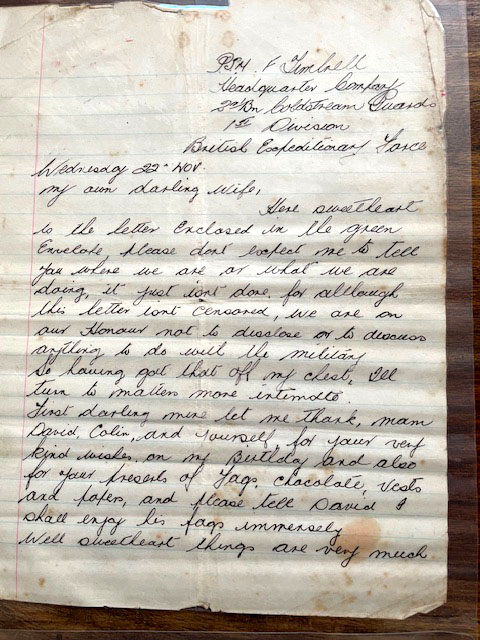 PSM. F Timbrell
Headquarter Company
2nd Bn Coldstream Guards
1st Division
British Expeditionary Force
Wednesday 22nd Nov.
My own darling wife,
Here sweetheart
is the letter enclosed in the green
Envelope, please dont expect me to tell
you where we are or what we are
doing, it just isnt done, for although
this letter isnt censored, we are on
our Honour not to disclose or to discuss
anything to do with the military
So having got that off my chest, I'll
turn to matters more intimate.
First darling mine let me thank, mam
David, Colin, and yourself, for your very
kind wishes, on my Birthday and also
for your presents of Fags, chocolate, Vests
and paper, and please tell David I
shall enjoy his fags immensely
Well sweetheart things are very much